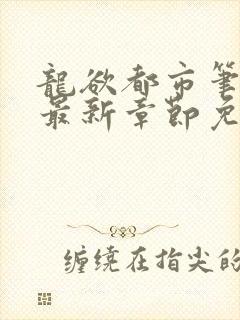 龍欲都市筆
最新章節免
缠绕在指尖的